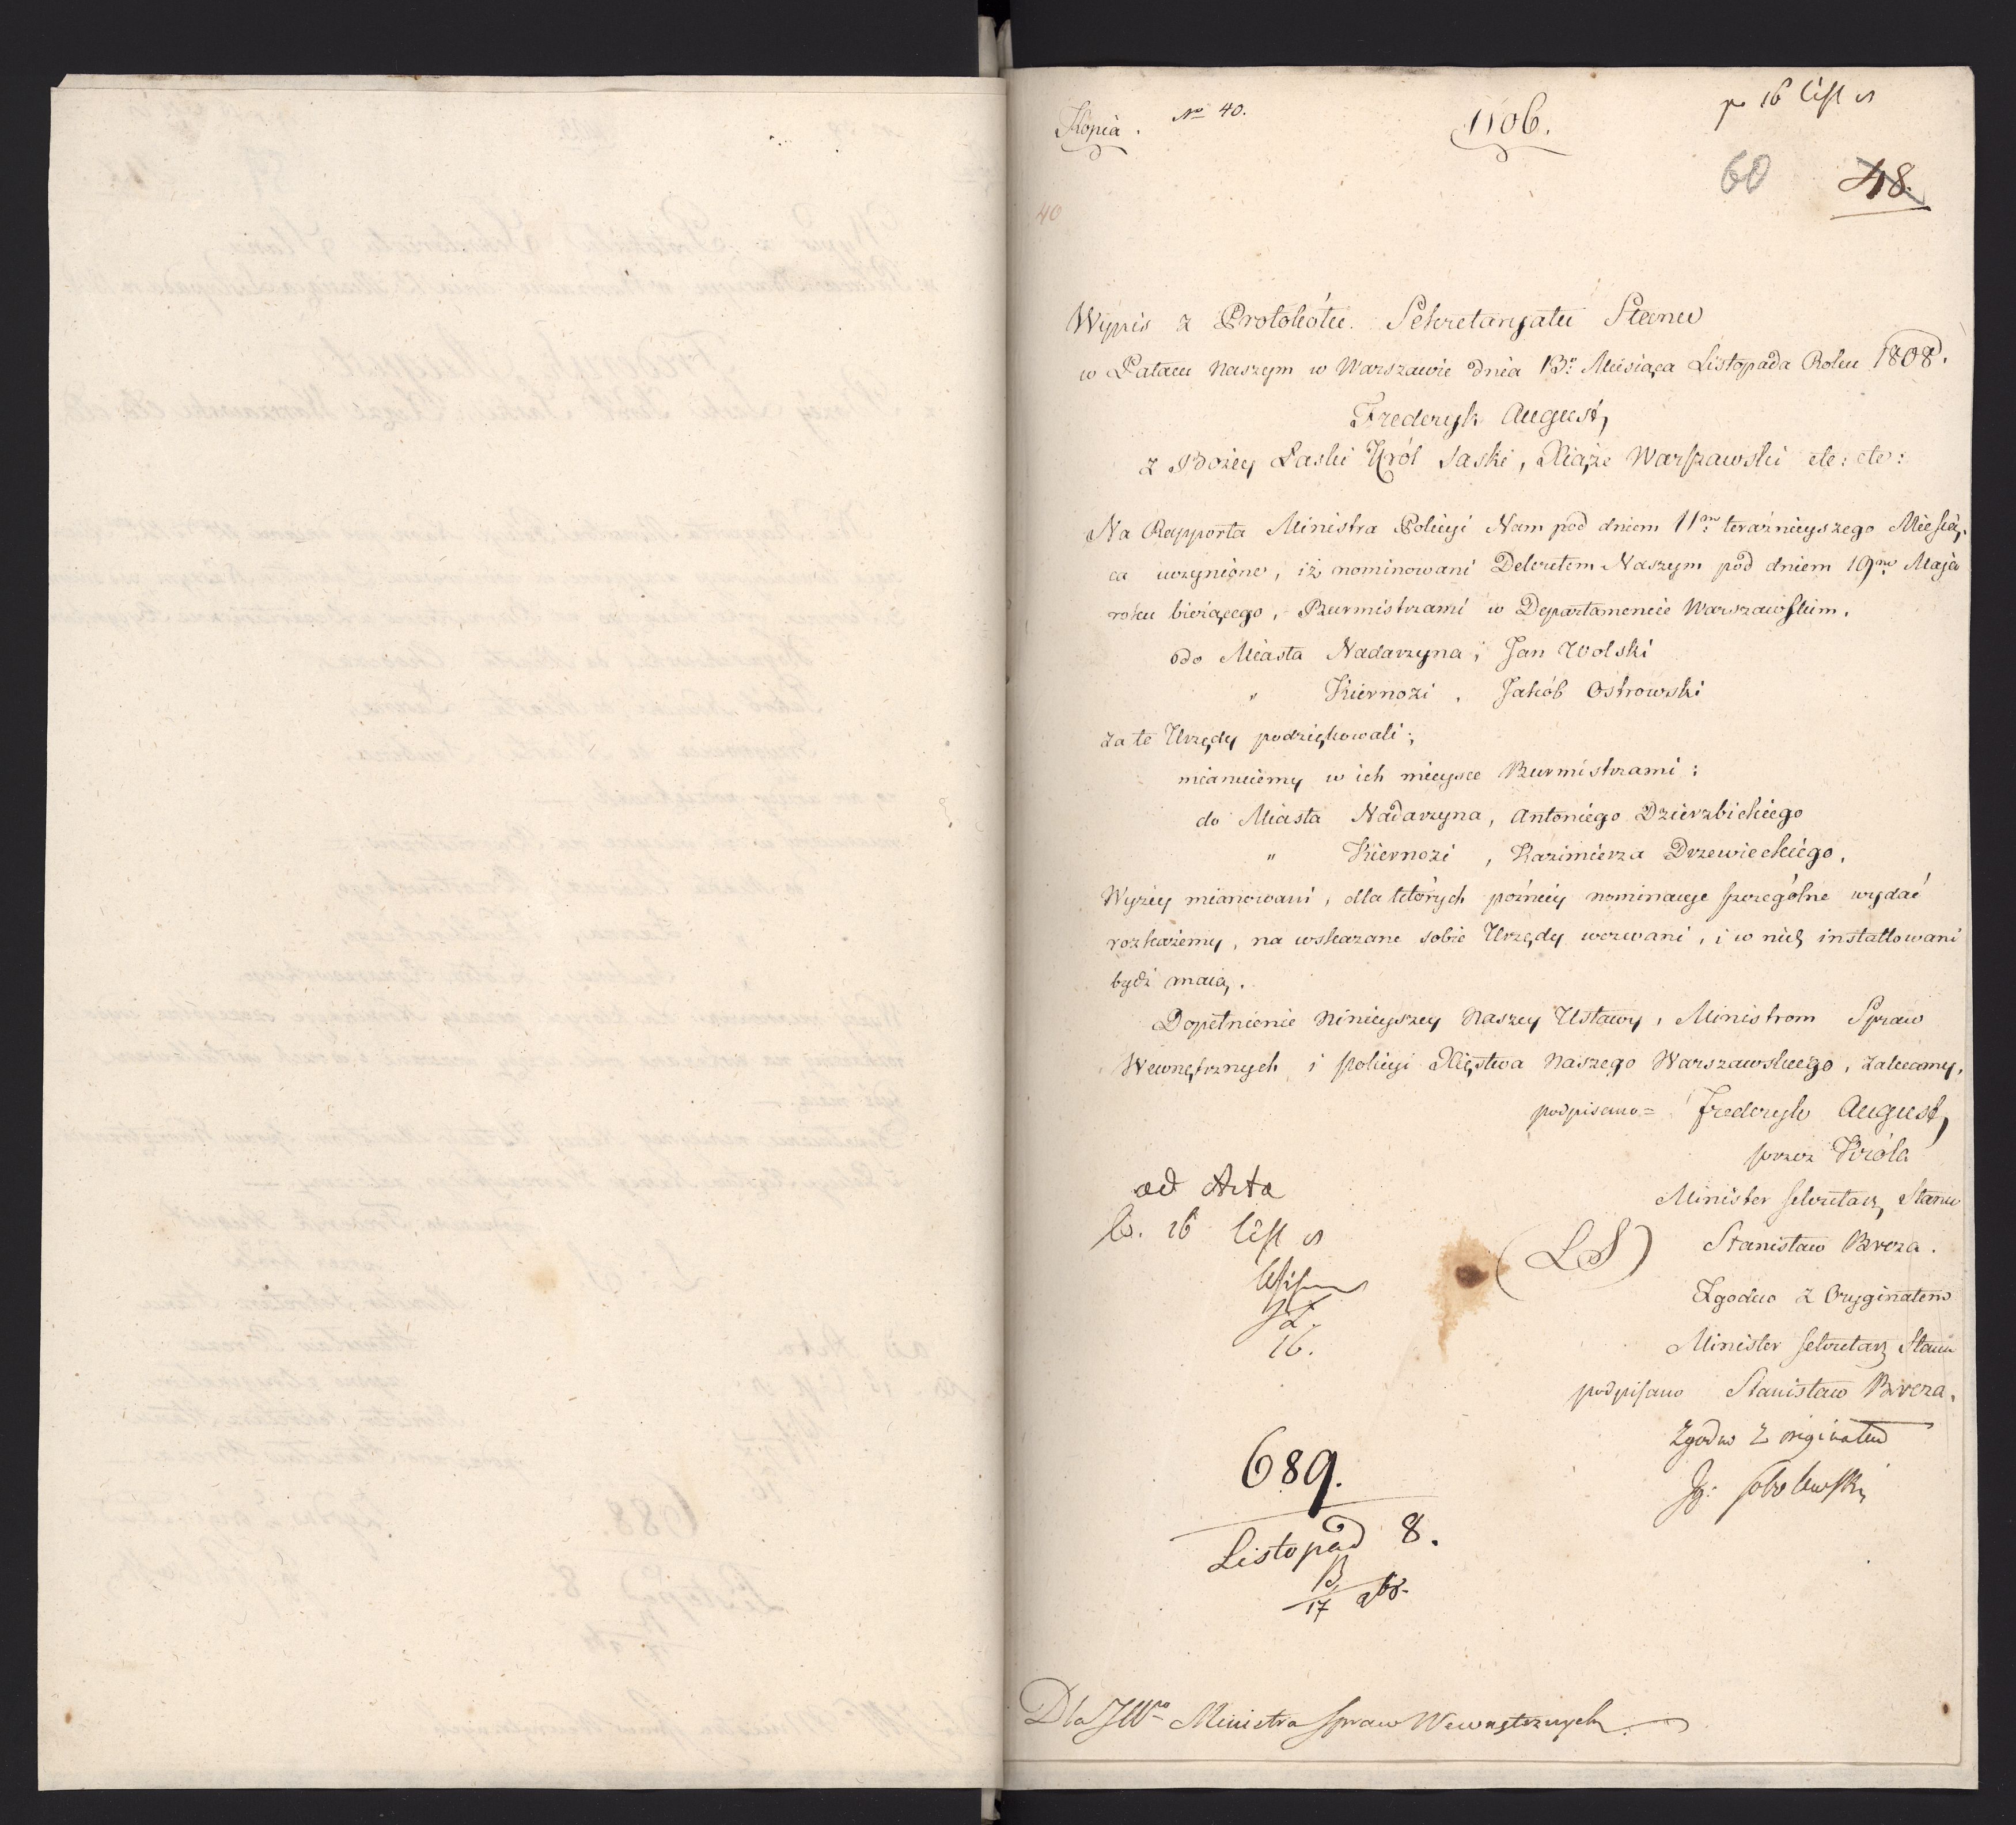 Kopia. No 40.
1106.
pr 16 List
60 48.
40
Wypis z Protokółu Sekretaryatu Stanu
w Pałacu Naszym w Warszawie dnia 13o Miesiąca Listopada Roku 1808.
Frederyk August,
z Bożey Łaski Król Saski, Xiąże Warszawski etc: etc:
Na Rapporta Ministra Policyi Nam pod dniem 11mo teraźnieyszego Miesią-
ca uczynione, iż nominowani Dekretem Naszym pod dniem 19mo Maja
roku bieżącego, Burmistrzami w Departamencie Warszawskim.
do Miasta Nadarzyna, Jan Wolski
" Kiernozi, Jakób Ostrowski
za te Urzędy podziękowali;
mianuiemy w ich mieysce Burmistrzami:
do Miasta Nadarzyna, Antoniego Dzierzbickiego
" Kiernozi, Kazimierza Drzewieckiego.
Wyżey mianowani, dla których późniey nominacye szczególne wydać
rozkażemy, na wskazane sobie Urzędy wezwani, i w nich installowani
bydź maią.
Dopełnienie Ninieyszey Naszey Ustawy, Ministrom Spraw
Wewnętrznych i Policyi Xięstwa Naszego Warszawskiego, zalecamy.
podpisano = Frederyk August,
przez Króla
Minister Sekretarz Stanu
(LS) Stanisław Breza.
Zgodno z Oryginałem
Minister Sekretarz Stanu
podpisano Stanisław Breza.
Zgodno z originałem
Ig: Sobolewski
ad Acta
16 List
16.
689.
Listopad 8.
13/17 9br.
Dla JWo Ministra Spraw Wewnętrznych.